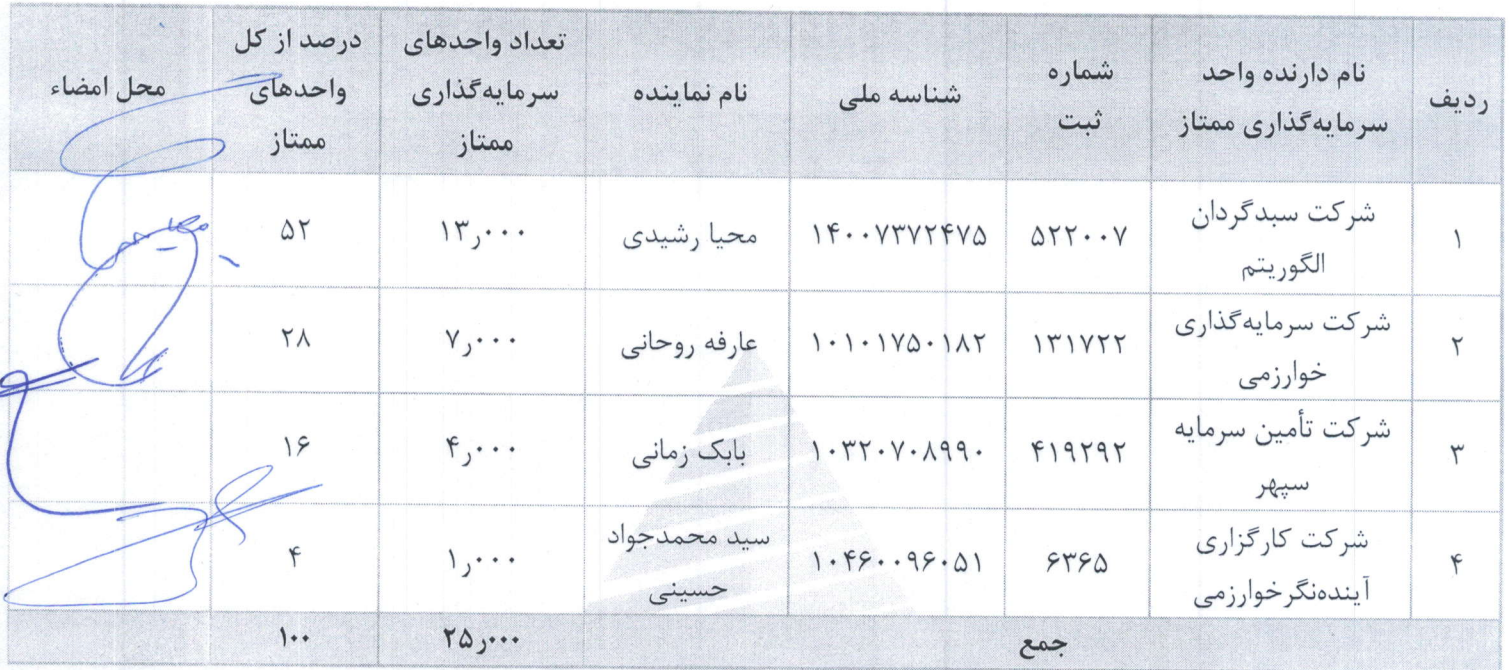 ردیف | نام دارنده واحد سرمایه‌گذاری ممتاز | شماره ثبت | شناسه ملی | نام نماینده | تعداد واحدهای سرمایه‌گذاری ممتاز | درصد از کل واحدهای ممتاز | محل امضاء
۱ | شرکت سبدگردان الگوریتم | ۵۲۲۰۰۷ | ۱۴۰۰۷۳۷۲۴۷۵ | محیا رشیدی | ۱۳٫۰۰۰ | ۵۲
۲ | شرکت سرمایه‌گذاری خوارزمی | ۱۳۱۷۲۲ | ۱۰۱۰۱۷۵۰۱۸۲ | عارفه روحانی | ۷٫۰۰۰ | ۲۸
۳ | شرکت تأمین سرمایه سپهر | ۴۱۹۲۹۲ | ۱۰۳۲۰۷۰۸۹۹۰ | بابک زمانی | ۴٫۰۰۰ | ۱۶
۴ | شرکت کارگزاری آینده‌نگرخوارزمی | ۶۳۶۵ | ۱۰۴۶۰۰۹۶۰۵۱ | سید محمدجواد حسینی | ۱٫۰۰۰ | ۴
جمع | ۲۵٫۰۰۰ | ۱۰۰